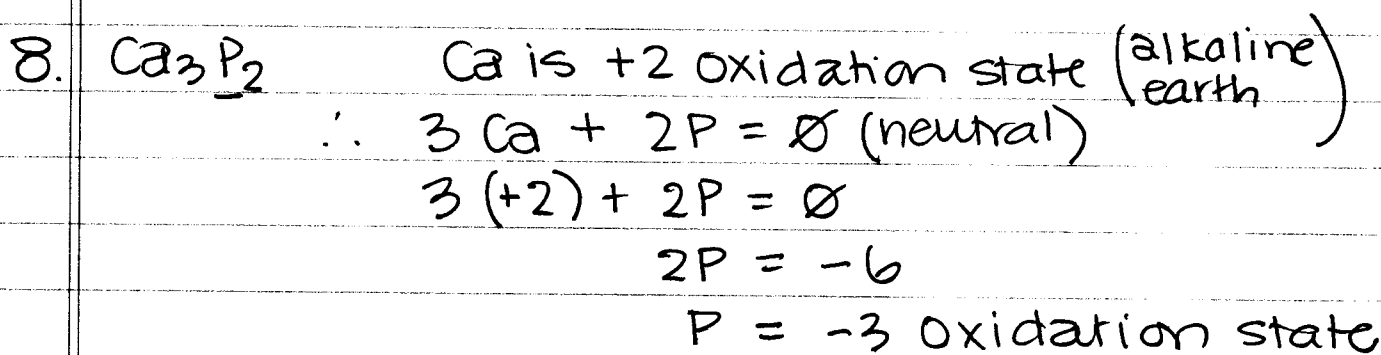 8. Ca₃P₂ Ca is +2 oxidation state (alkaline earth)
∴ 3 Ca + 2P = Ø (neutral)
3 (+2) + 2P = Ø
2P = -6
P = -3 oxidation state